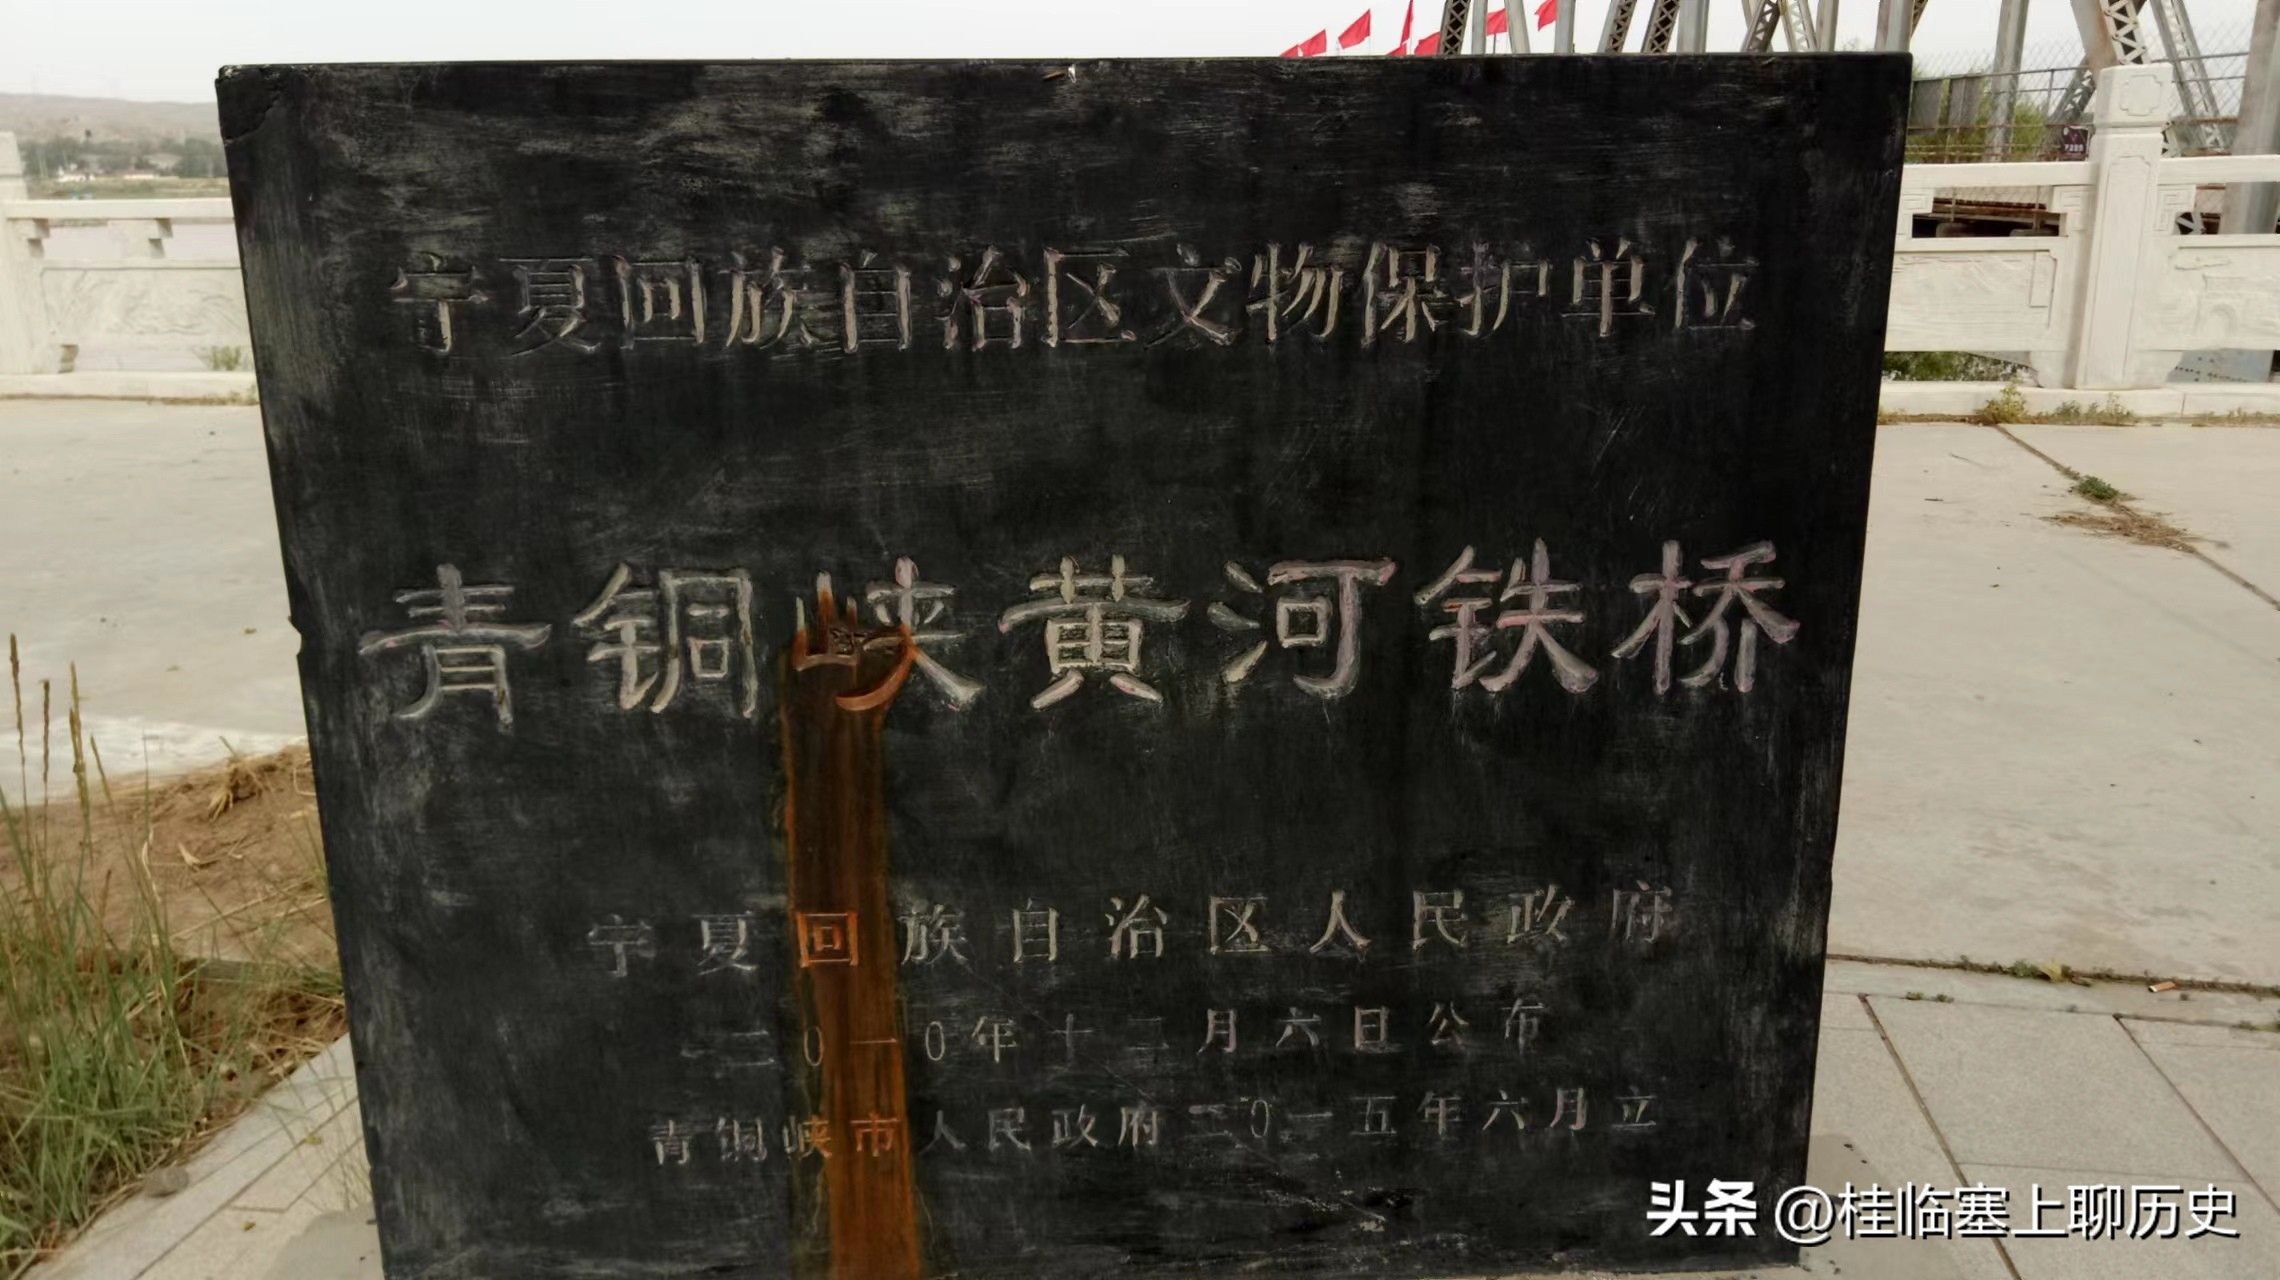 宁夏回族自治区文物保护单位
青铜峡黄河铁桥
宁夏回族自治区人民政府
二0一0年十二月六日公布
青铜峡市人民政府二0一五年六月立
头条 @桂临塞上聊历史